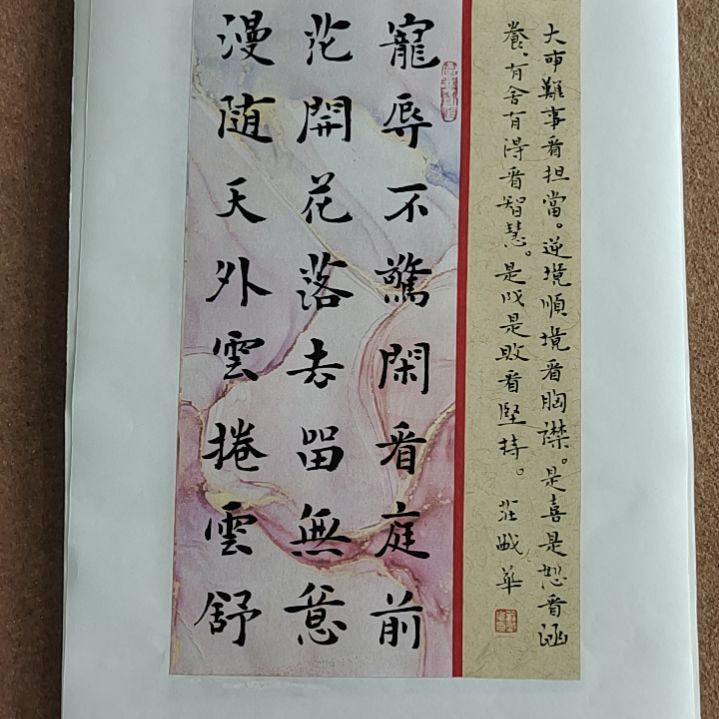 大事難事看担當。逆境順境看胸襟。是喜是怒看涵
養、有舍有得看智慧。是成是敗看堅持。莊
華
寵辱不驚閑看庭前
花開花落去留無意
漫随天外雲捲雲舒